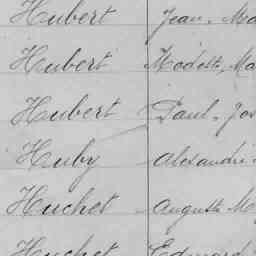 Hubert Jean, Ma
Hubert Modeste, Ma
Hubert Paul, Jos
Huby Alexandre
Huchet Auguste Ma
Huchet Edouard